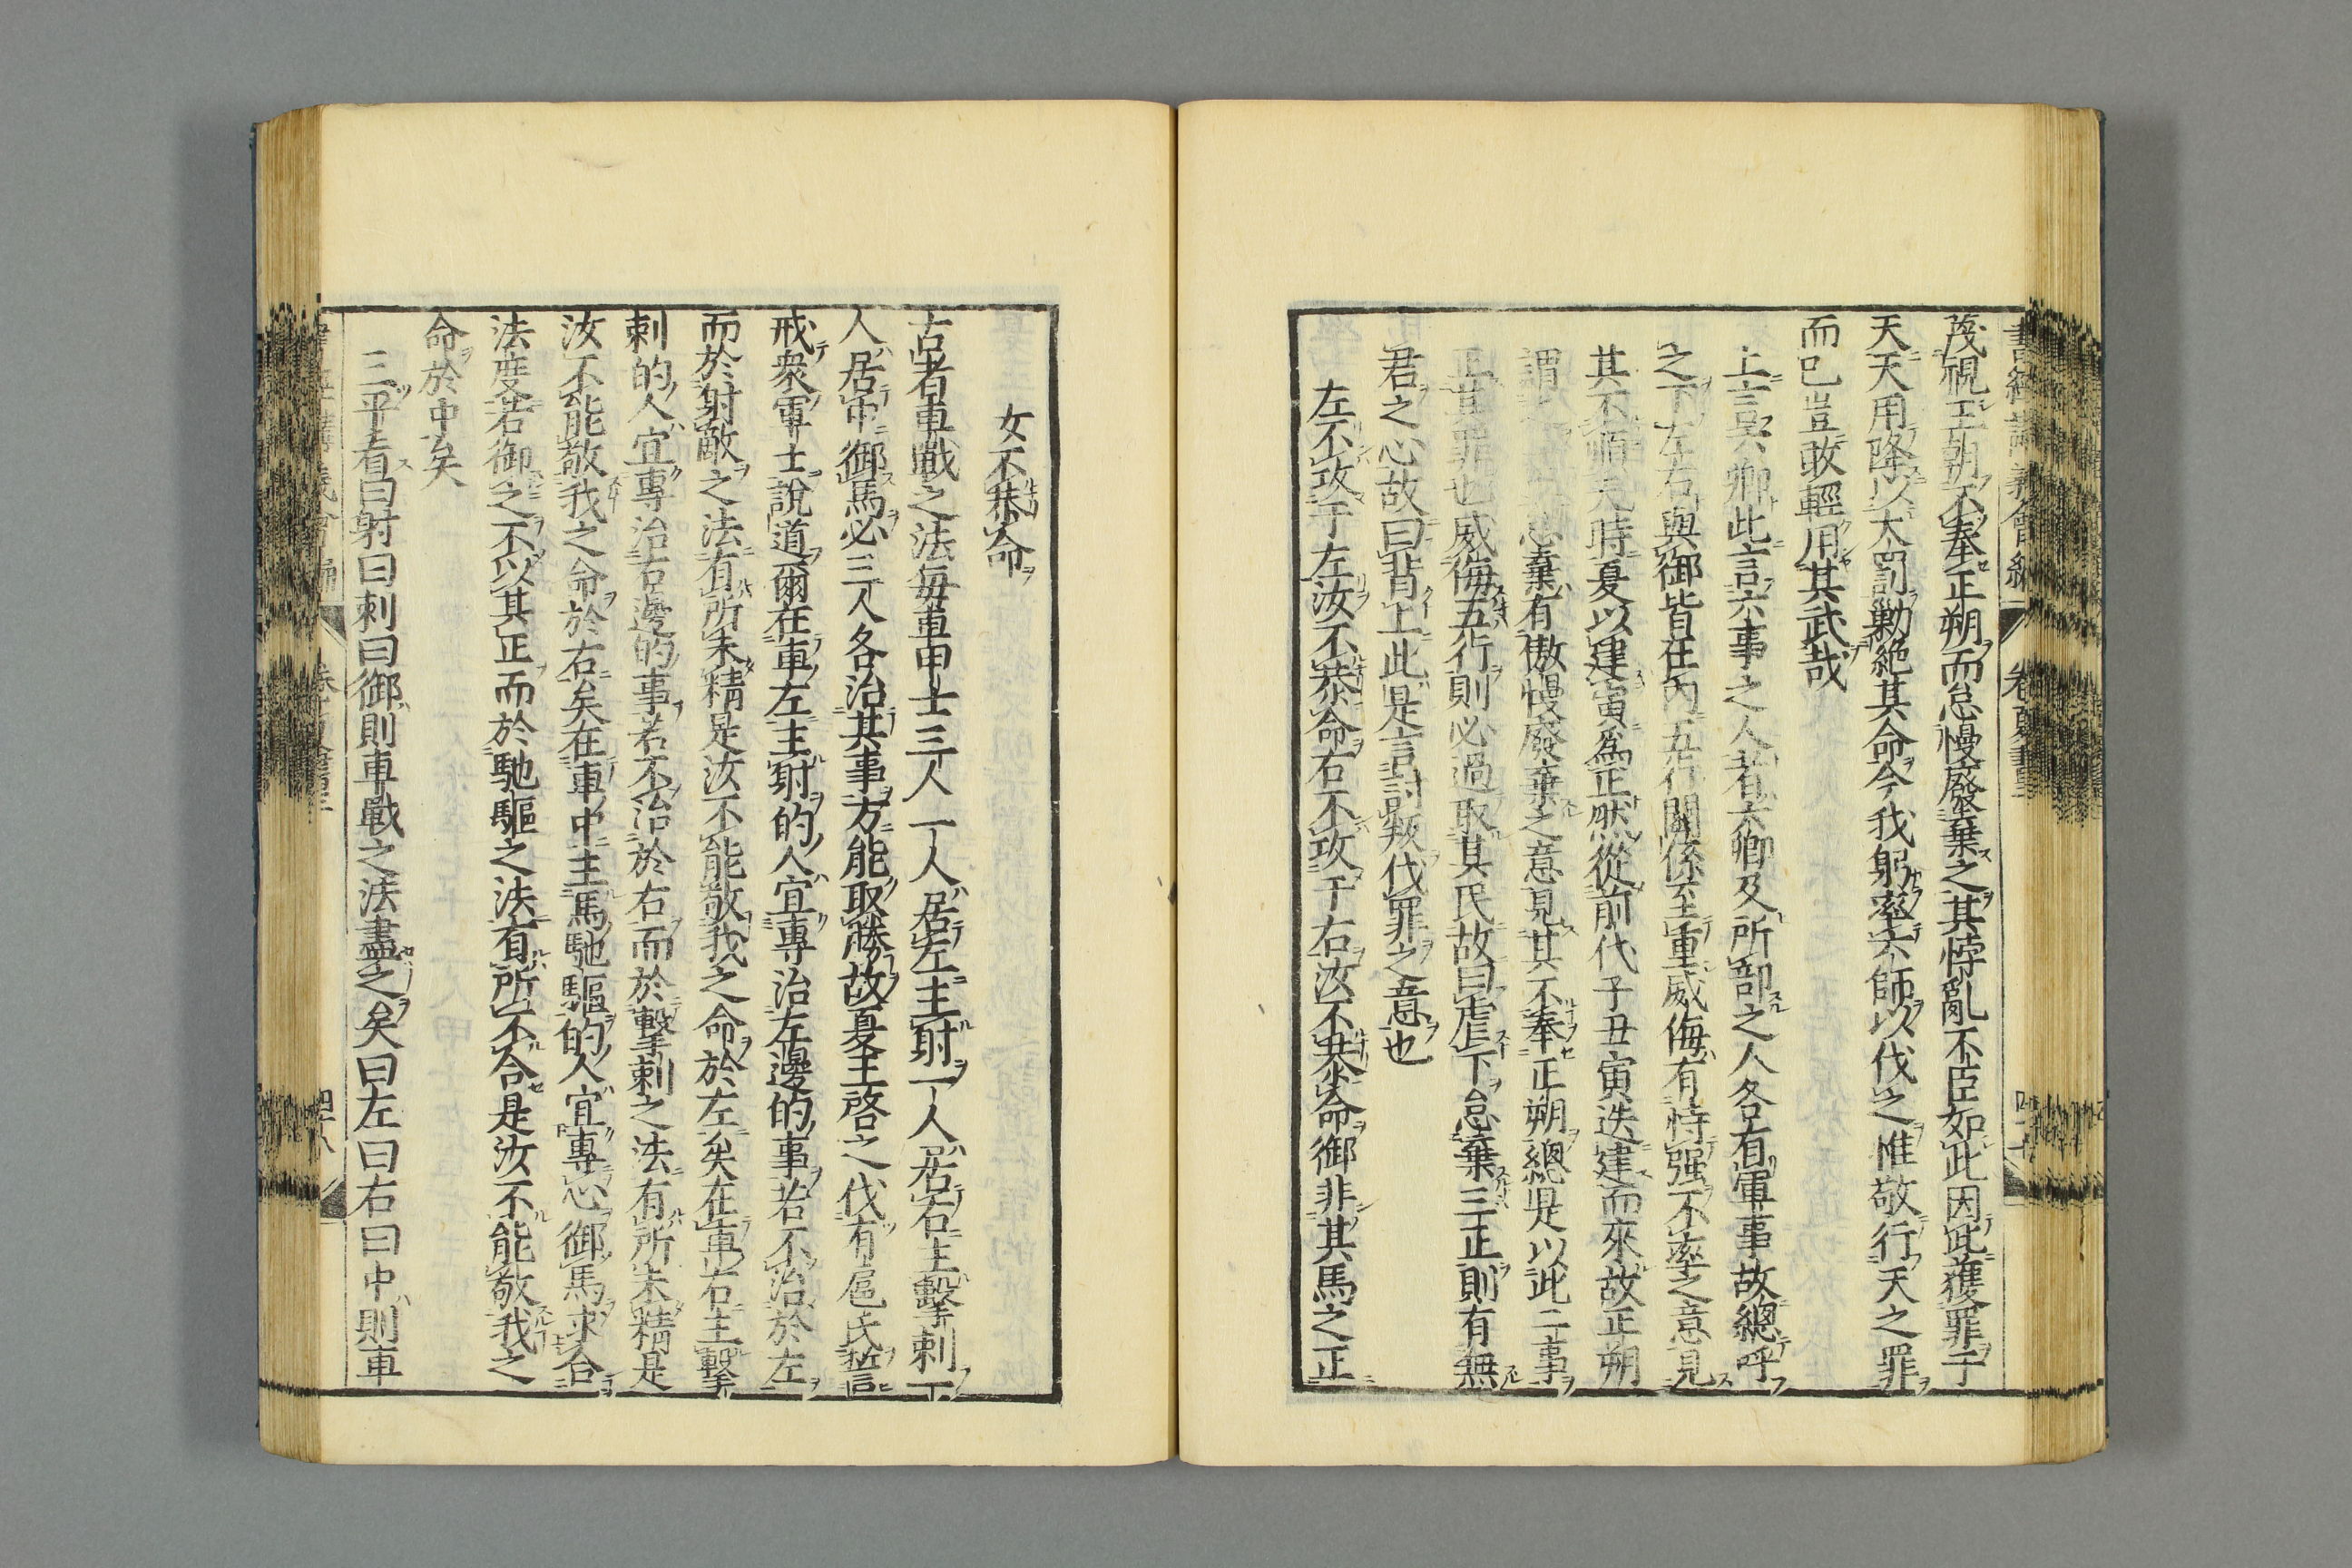 蔑視王朝不奉正朔而怠慢廢棄之其悖亂不臣如此因此獲罪于
天天用降以大罰勦絶其命今我躬率六師以伐之惟敬行天之罪
而已豈敢輕用其武哉
上言六卿此言六事之人者六卿及所部之人各有軍事故總呼
之下左右與御皆在內五行關係至重威侮有恃强不率之意見
其不順天時夏以建寅爲正然從前代子丑寅迭建而來故正朔
謂之 怠棄有傲慢廢棄之意見其不奉正朔總是以此二事
正其罪也威侮五行則必過取其民故曰虐下怠棄三正則有無
君之心故曰背上此是言討叛伐罪之意也
左不攻于左汝不恭命右不攻于右汝不恭命御非其馬之正
女不恭命
古者車戰之法每車甲士三人一人居左主射一人居右主擊刺一
人居中御馬必三人各治其事方能取勝故夏王啓之伐有扈氏誓
戒衆軍士說道爾在車左主射的人宜專治左邊的事若不治於左
而於射敵之法有所未精是汝不能敬我之命於左矣在車右主擊
刺的人宜專治右邊的事若不治於右而於擊刺之法有所未精是
汝不能敬我之命於右矣在車中主馬馳驅的人宜專心御馬求合
法度若御之不以其正而於馳驅之法有所不合是汝不能敬我之
命於中矣
三平者曰射曰刺曰御則車戰之法盡之矣曰左曰右曰中則車